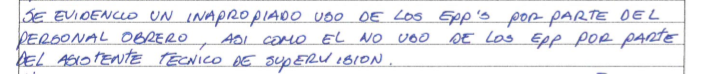 SE EVIDENCIO UN INAPROPIADO USO DE LOS EPP'S POR PARTE DEL
PERSONAL OBRERO, ASI COMO EL NO USO DE LOS EPP POR PARTE
DEL ASISTENTE TECNICO DE SUPERVISION.